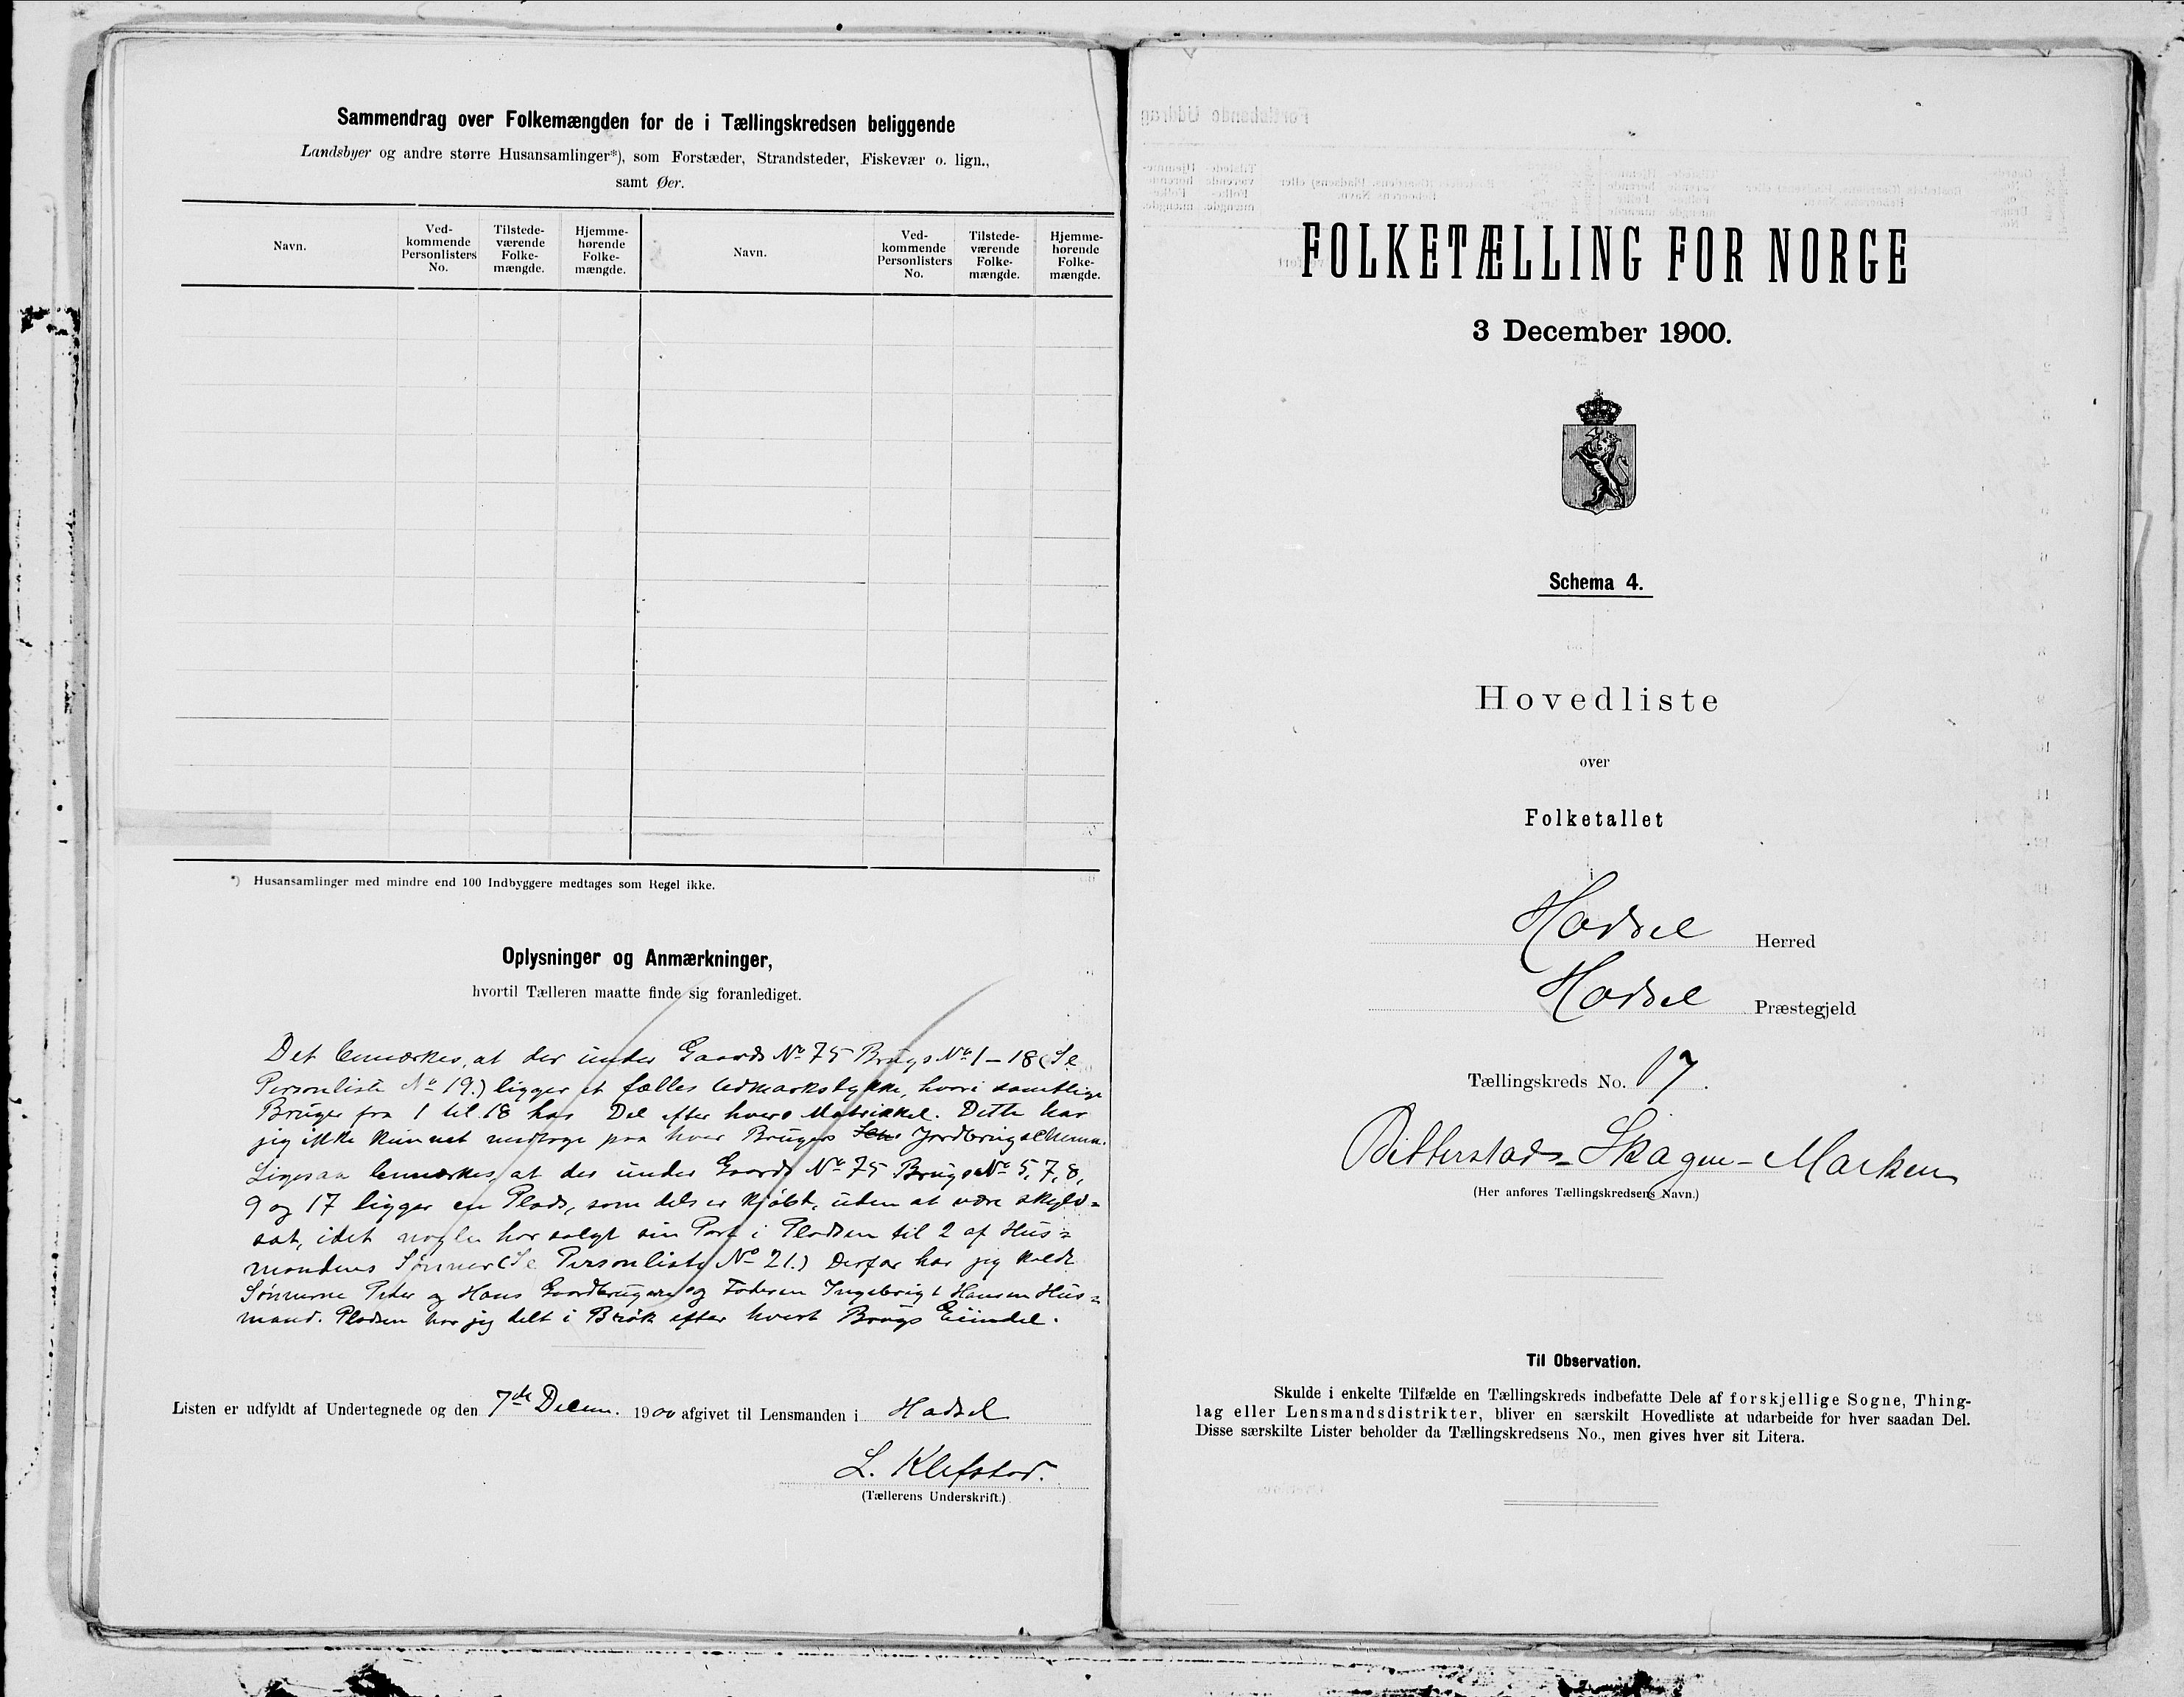 Sammendrag over Folkemængden for de i Tællingskredsen beliggende
Landsbyer og andre større Husansamlinger*), som Forstæder, Strandsteder, Fiskevær o. lign.,
samt Øer.
Navn.
Ved-
kommende
Personlisters
No.
Tilstede-
værende
Folke-
mængde.
Hjemme-
hørende
Folke-
mængde.
Navn.
Ved-
kommende
Personlisters
No.
Tilstede-
værende
Folke-
mængde.
Hjemme-
hørende
Folke-
mængde.
*) Husansamlinger med mindre end 100 Indbyggere medtages som Regel ikke.
Oplysninger og Anmærkninger,
hvortil Tælleren maatte finde sig foranlediget.
Det bemærkes, at der under Gaards No 75 Brugs No 1 – 18 (Se
Personliste No 19.) ligger et fælles Udmarkstykke, hvori samtlige
Bruger fra 1 til 18 har Del efter hvers Matrikkel. Dette har
jeg ikke kunnet medtage paa hver Brugers Jordbrugschema.
Ligesaa bemærkes, at der under Gaards No 75 Brugs No 5, 7, 8,
9 og 17 ligger en Plads, som dels er kjøbt, uden at være skyld=
sat, idet nogle har solgt sin Part i Pladsen til 2 af Hus=
mandens Sønner (Se Personliste No 21.) Derfor har jeg kaldt
Sønnerne Peder og Hans Gaardbrugere og Faderen Ingebrigt Hansen Hus=
mand. Pladsen har jeg delt i Brøk efter hvert Brugs Eiendel.
Listen er udfyldt af Undertegnede og den 7de Decem. 1900 afgivet til Lensmanden i Hadsel
L. Klefstad.
(Tællerens Underskrift.)
FOLKETÆLLING FOR NORGE
3 December 1900.
Schema 4.
Hovedliste
over
Folketallet
i
Hadsel Herred
Hadsel Præstegjeld
Tællingskreds No. 17.
Bitterstad-Skagen-Marken
(Her anføres Tællingskredsens Navn.)
Til Observation.
Skulde i enkelte Tilfælde en Tællingskreds indbefatte Dele af forskjellige Sogne, Thing-
lag eller Lensmandsdistrikter, bliver en særskilt Hovedliste at udarbeide for hver saadan Del.
Disse særskilte Lister beholder da Tællingskredsens No., men gives hver sit Litera.